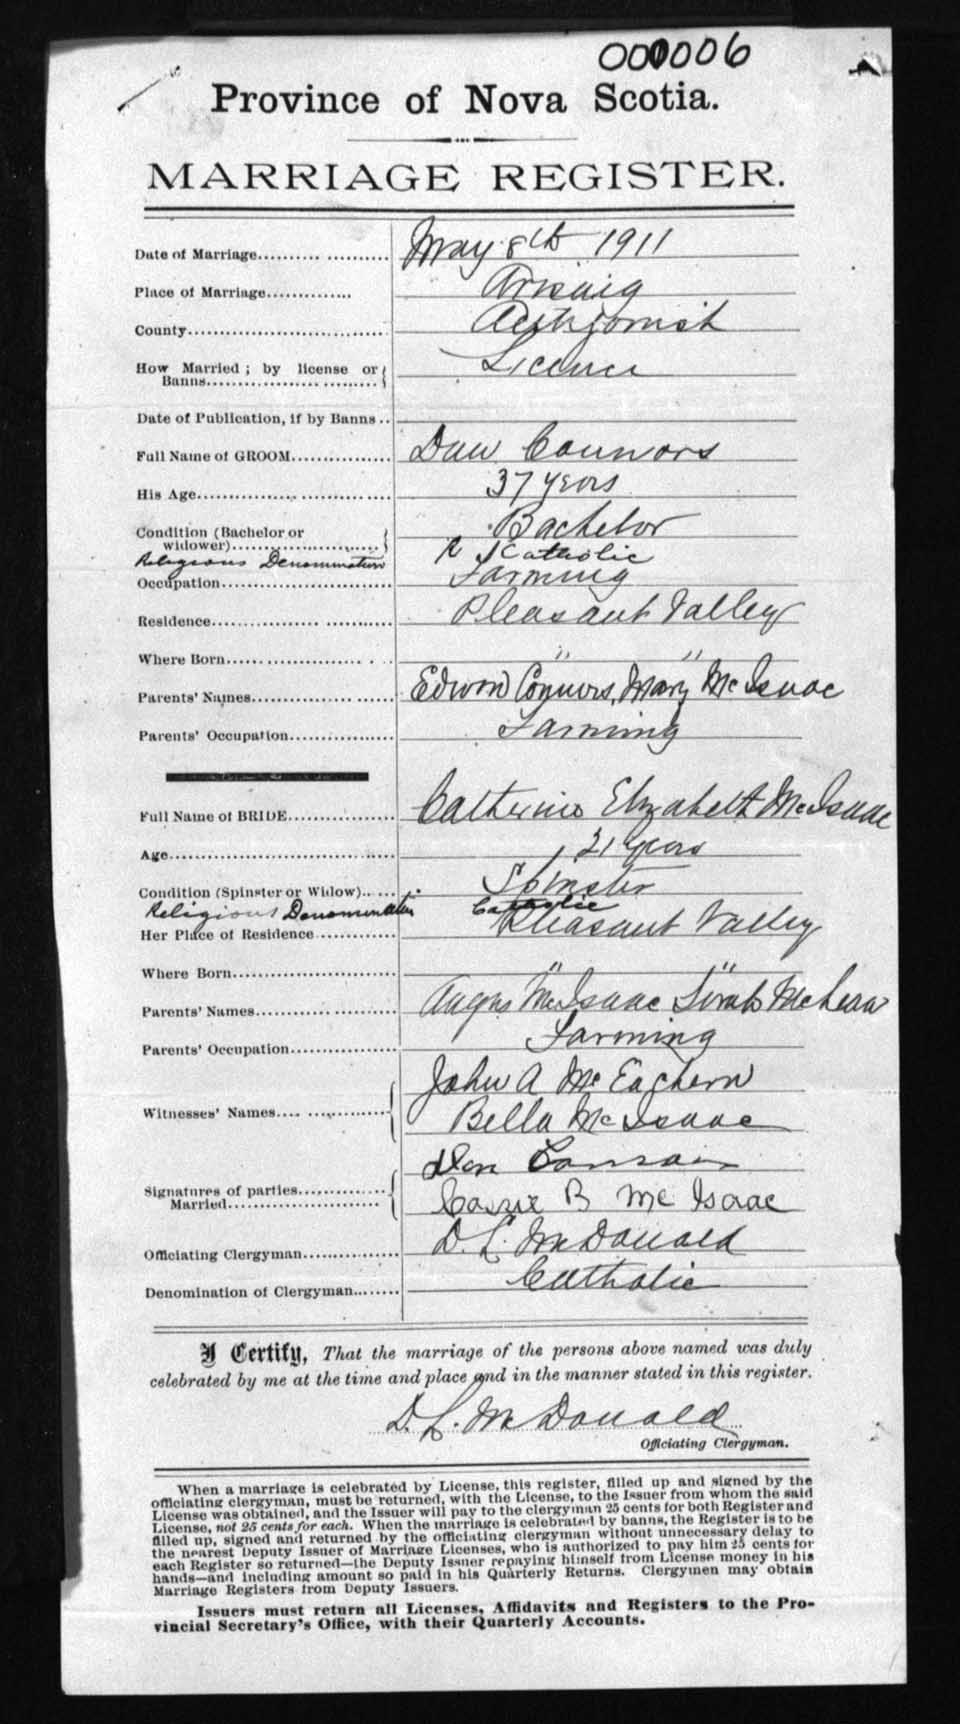 000006
Province of Nova Scotia.
MARRIAGE REGISTER.
Date of Marriage.......... .......... May 8th 1911
Place of Marriage.............. Arisaig
County................................ Antigonish
How Married ; by license or
Banns.................... ......... Licence
Date of Publication, if by Banns ..
Full Name of GROOM................ Dan Connors
His Age................. .............. 37 years
Condition (Bachelor or
widower)........................ Bachelor
Religious Denomination R Catholic
Occupation........................... Farming
Residence................ ........... Pleasant Valley
Where Born...................... . . " "
Parents' Names.............. ...... Edward Connors, Mary McIsaac
Parents' Occupation................. Farming
Full Name of BRIDE................. Catherine Elizabeth McIsaac
Age.................................... 21 years
Condition (Spinster or Widow)...... Spinster
Religious Denomination Catholic
Her Place of Residence............. Pleasant Valley
Where Born.......................... " "
Parents' Names.............. ......... Angus McIsaac Sarah
Parents' Occupation................. Farming
John A McEachern
Witnesses' Names.... ............... Bella McIsaac
Dan Connors
Signatures of parties..............
Married......................... Cassie B McIsaac
Officiating Clergyman............... D. L. McDonald
Denomination of Clergyman....... Catholic
I Certify, That the marriage of the persons above named was duly
celebrated by me at the time and place and in the manner stated in this register.
D. L. McDonald
Officiating Clergyman.
When a marriage is celebrated by License, this register, filled up and signed by the
officiating clergyman, must be returned, with the License, to the Issuer from whom the said
License was obtained, and the Issuer will pay to the clergyman 25 cents for both Register and
License, not 25 cents for each. When the marriage is celebrated by banns, the Register is to be
filled up, signed and returned by the officiating clergyman without unnecessary delay to
the nearest Deputy Issuer of Marriage Licenses, who is authorized to pay him 25 cents for
each Register so returned—the Deputy Issuer repaying himself from License money in his
hands—and including amount so paid in his Quarterly Returns. Clergymen may obtain
Marriage Registers from Deputy Issuers.
Issuers must return all Licenses, Affidavits and Registers to the Pro-
vincial Secretary's Office, with their Quarterly Accounts.